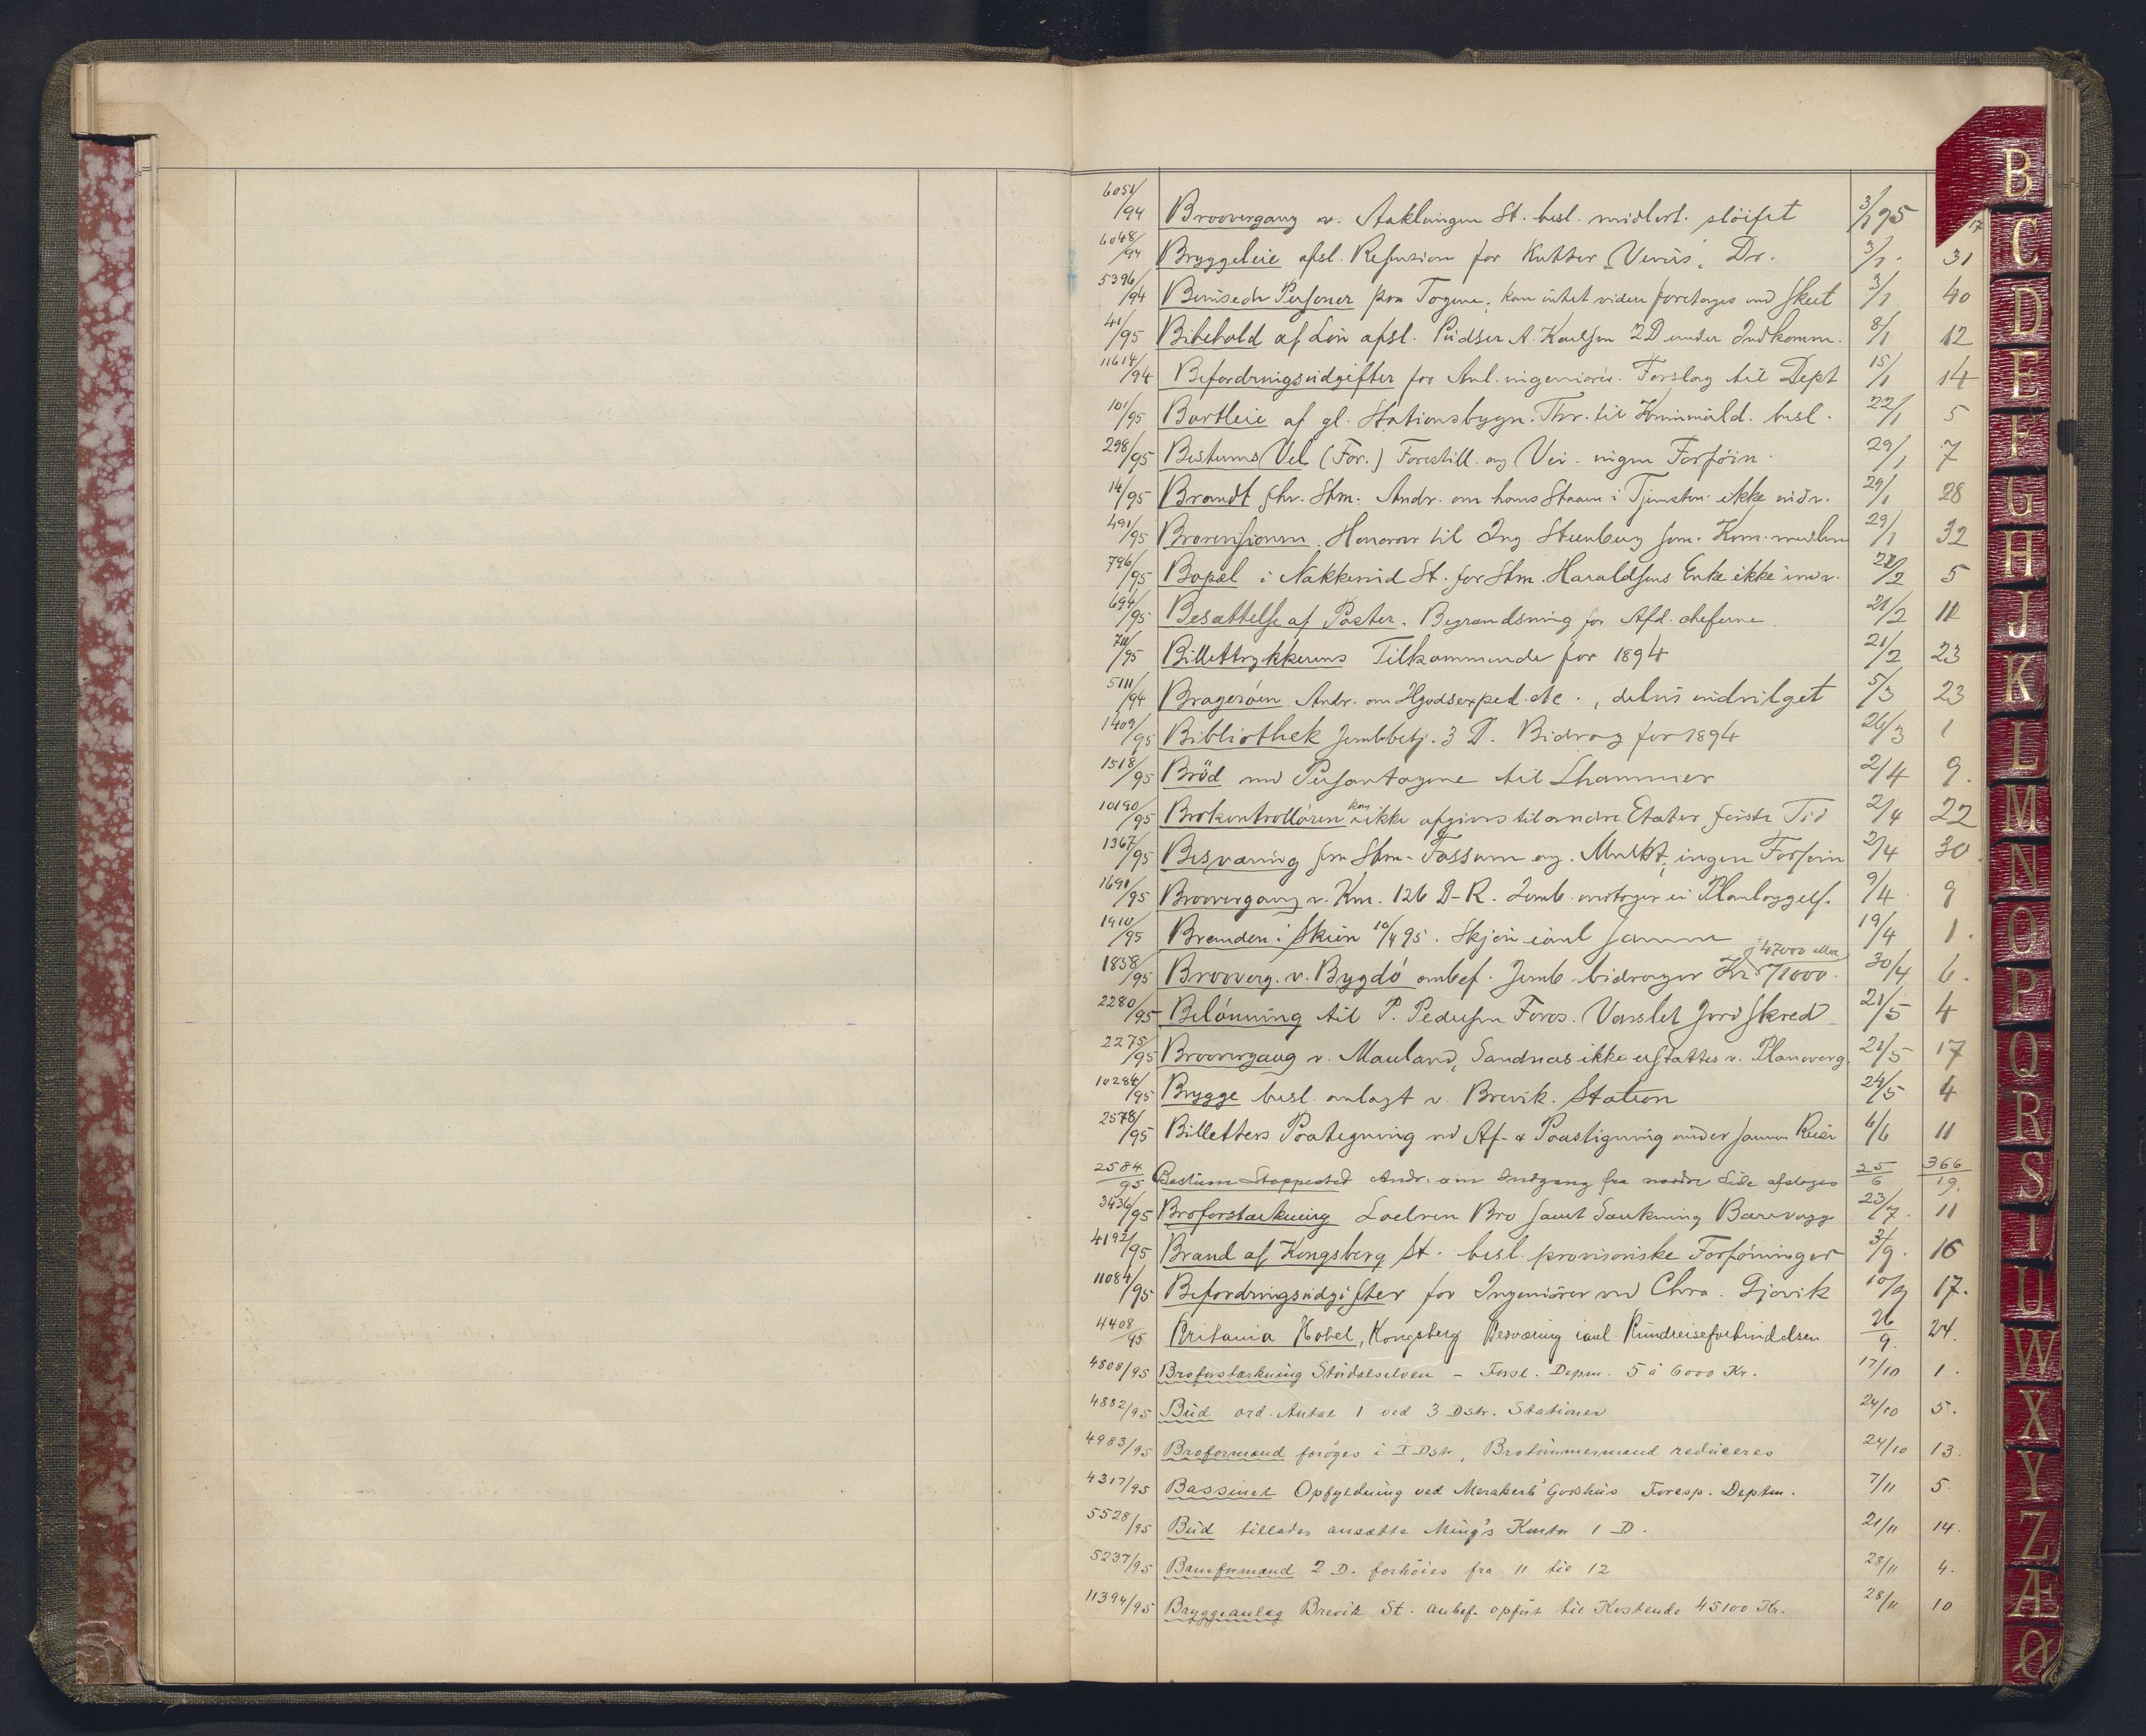 6051/94 Broovergang v. Stakkingen St. besl. midlert. slöifet 3/1 95 17
6048/94 Bryggeleie afsl. Refusion for Kutter "Venüs", Dr. 3/1. 31
5396/94 Personer paa Togene, kan intet videre foretages med 3/1 40
41/95 Bibehold af Lön afsl. Püdser A. Karlsen 2D under Indkomm. 8/1 12
11614/94 Befordringsüdgifter for Anl. ingeniörer. Forslag til Dept 15/1 14
101/95 Bortleie af gl. Stationsbygn. Thr. til besl. 22/1 5
298/95 Bestums Vel (For.) Forestill. ang Vei. ingen Forföin. 29/1 7
14/95 Brandt fhv. Stm. Andr. om hans i Tjenesten ikke indv. 29/1 28
491/95 Brorevisionen. Honorar til Ing. Steenberg som Kom. medlem 29/1 32
796/95 Bopæl i Nakkerud St. for Stm. Haraldsens Enke ikke indv. 21/2 5
694/95 Besættelse af Poster. Begrændsning for Afd. cheferne 21/2 11
711/95 Billettrykkerens Tilkommende for 1894 21/2 23
5111/94 Bragerøen Andr. om Ilgodsexped. etc., delvis indvilget 5/3 23
1409/95 Bibliothek Jernbbetj. 3 D. Bidrag for 1894 26/3 1
1518/95 Bröd med Persontogene til Lhammer 2/4 9.
10190/95 Brokontrolløren kan ikke afgives til andre Etater første Tid 2/4 22
1367/95 Besværing fra Stm. Fossum ang. Mulkt, ingen Forföin 2/4 30.
1691/95 Broovergang v. Km. 126 D-R. Jernb. overtager ei Planlæggels. 9/4. 9
1910/95 Branden i Skien 10/4 95. Skjön i anl samme 19/4 1.
1858/95 Broverg. v. Bygdö anbef. Jernb. bidrager Kr. 71000. 47000 30/4 6.
2280/95 Belönning til P. Pedersen Foros. Varslet Jordskred 21/5 4
2275/95 Broovergang v. Mauland, Sandnæs ikke erstattes v. Planoverg. 21/5 17
10284/95 Brygge besl. anlagt v. Brevik. Station 24/5 4
2578/95 Billetters Paategning ved Af- & Paastigning under samme Reise 6/6 11
2584/95 Bestum Stoppested Andr. om Indgang fra nordre Side afslages 25/6 366 19.
3436/95 Broforstærkning Loelven Bro samt Sænkning 23/7. 11
4192/95 Brand af Kongsberg St. besl. provisoriske Forföininger 3/9. 16
11084/95 Befordringsüdgifter for Ingeniörer ved Chra. Gjövik 10/9 17.
4408/95 Britania Hotel, Kongsberg Besværing i anl. Rundreiseforbindelsen 26/9. 24.
4808/95 Broforstærkning Stördalselven – Forsl. Depm. 5 à 6000 Kr. 17/10 1.
4882/95 Büd ord. Antal 1 ved 3 Dstr. Stationer 24/10 5.
4983/95 Broformænd foröges i I Dstr, Brotömmermænd redüceres 24/10 13.
4317/95 Bassinet Opfyldning ved Merakerb. Godshüs Foresp. Deptm. 7/11 5
5528/95 Büd tillades ansætte Ming's Kontor 1 D. 21/11 14.
5237/95 Baneformænd 2 D. forhöies fra 11 til 12 28/11 4.
11394/95 Bryggeanlæg Brevik St. anbef. opfört til Kostende 45100 Kr. 28/11 10
B
C
D
E
F
G
H
J
K
L
M
N
O
P
Q
R
S
T
U
W
X
Y
Z
Æ
Ø